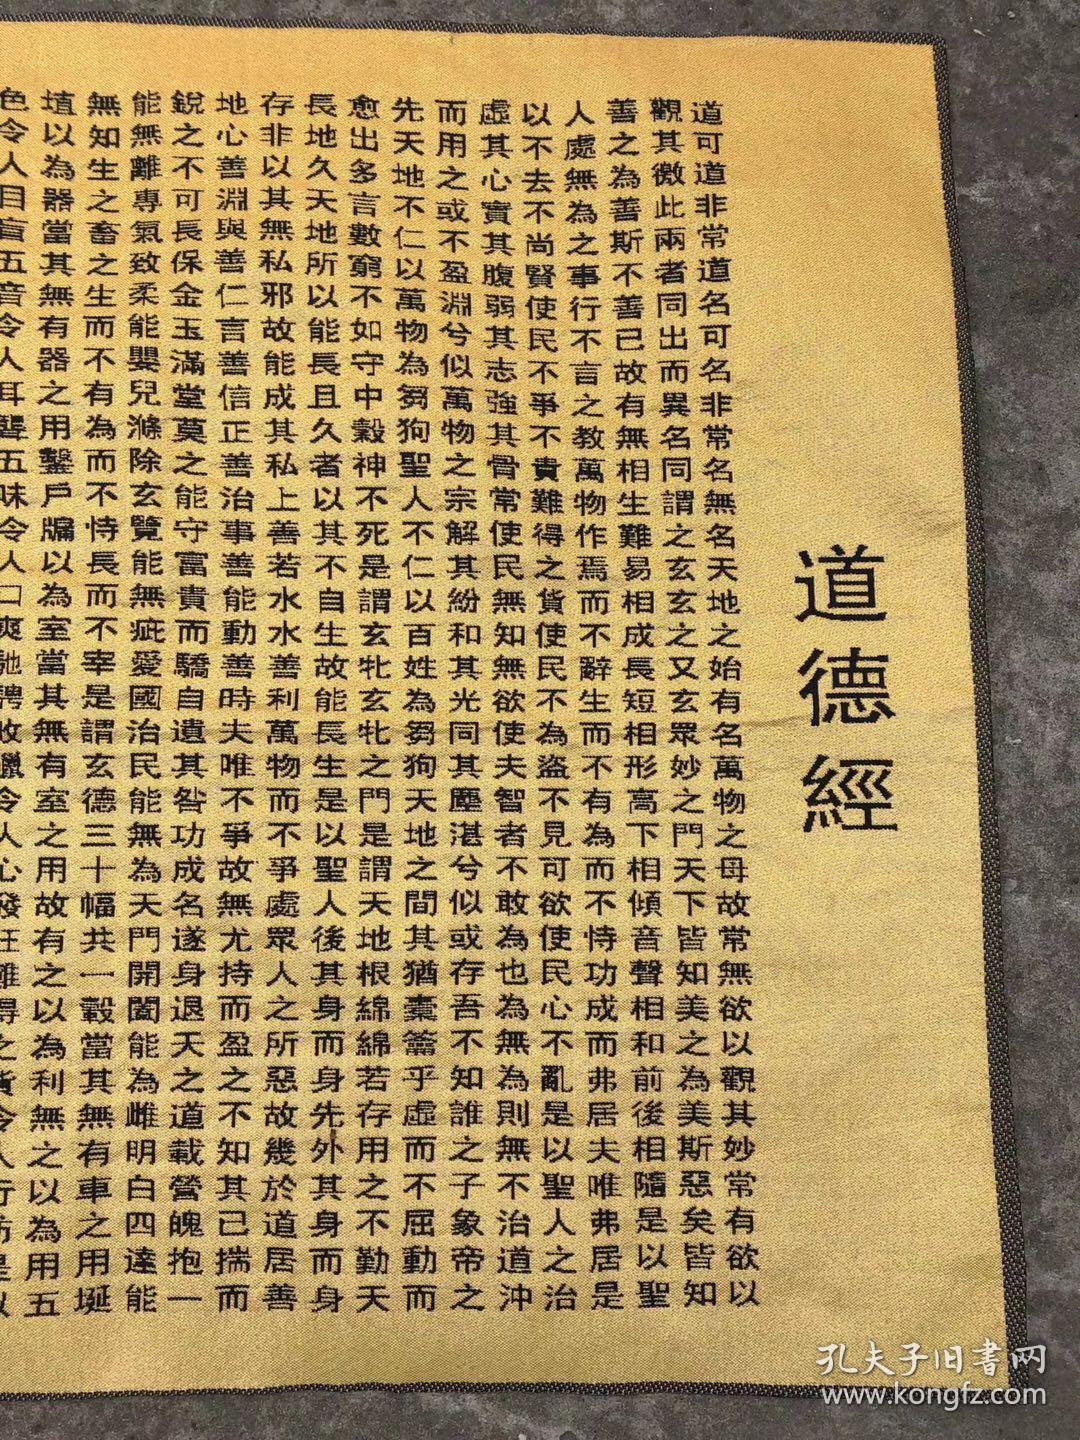 道德經
道可道非常道名可名非常名無名天地之始有名萬物之母故常無欲以觀其妙常有欲以
觀其微此兩者同出而異名同謂之玄玄之又玄眾妙之門天下皆知美之為美斯惡矣皆知
善之為善斯不善已故有無相生難易相成長短相形高下相傾音聲相和前後相隨是以聖
人處無為之事行不言之教萬物作焉而不辭生而不有為而不恃功成而弗居夫唯弗居是
以不去不尚賢使民不爭不貴難得之貨使民不為盜不見可欲使民心不亂是以聖人之治
虛其心實其腹弱其志強其骨常使民無知無欲使夫智者不敢為也為無為則無不治道沖
而用之或不盈淵兮似萬物之宗解其紛和其光同其塵湛兮似或存吾不知誰之子象帝之
先天地不仁以萬物為芻狗聖人不仁以百姓為芻狗天地之間其猶橐籥乎虛而不屈動而
愈出多言數窮不如守中穀神不死是謂玄牝玄牝之門是謂天地根綿綿若存用之不勤天
長地久天地所以能長且久者以其不自生故能長生是以聖人後其身而身先外其身而身
存非以其無私邪故能成其私上善若水水善利萬物而不爭處眾人之所惡故幾於道居善
地心善淵與善仁言善信正善治事善能動善時夫唯不爭故無尤持而盈之不知其已揣而
銳之不可長保金玉滿堂莫之能守富貴而驕自遺其咎功成名遂身退天之道載營魄抱一
能無離專氣致柔能嬰兒滌除玄覽能無疵愛國治民能無為天門開闔能為雌明白四達能
無知生之畜之生而不有為而不恃長而不宰是謂玄德三十幅共一轂當其無有車之用埏
埴以為器當其無有器之用鑿戶牖以為室當其無有室之用故有之以為利無之以為用五
色令人目盲五音令人耳聾五味令人口爽馳騁畋獵令人心發狂難得之貨令人行妨是以
孔夫子旧書网
www.kongfz.com